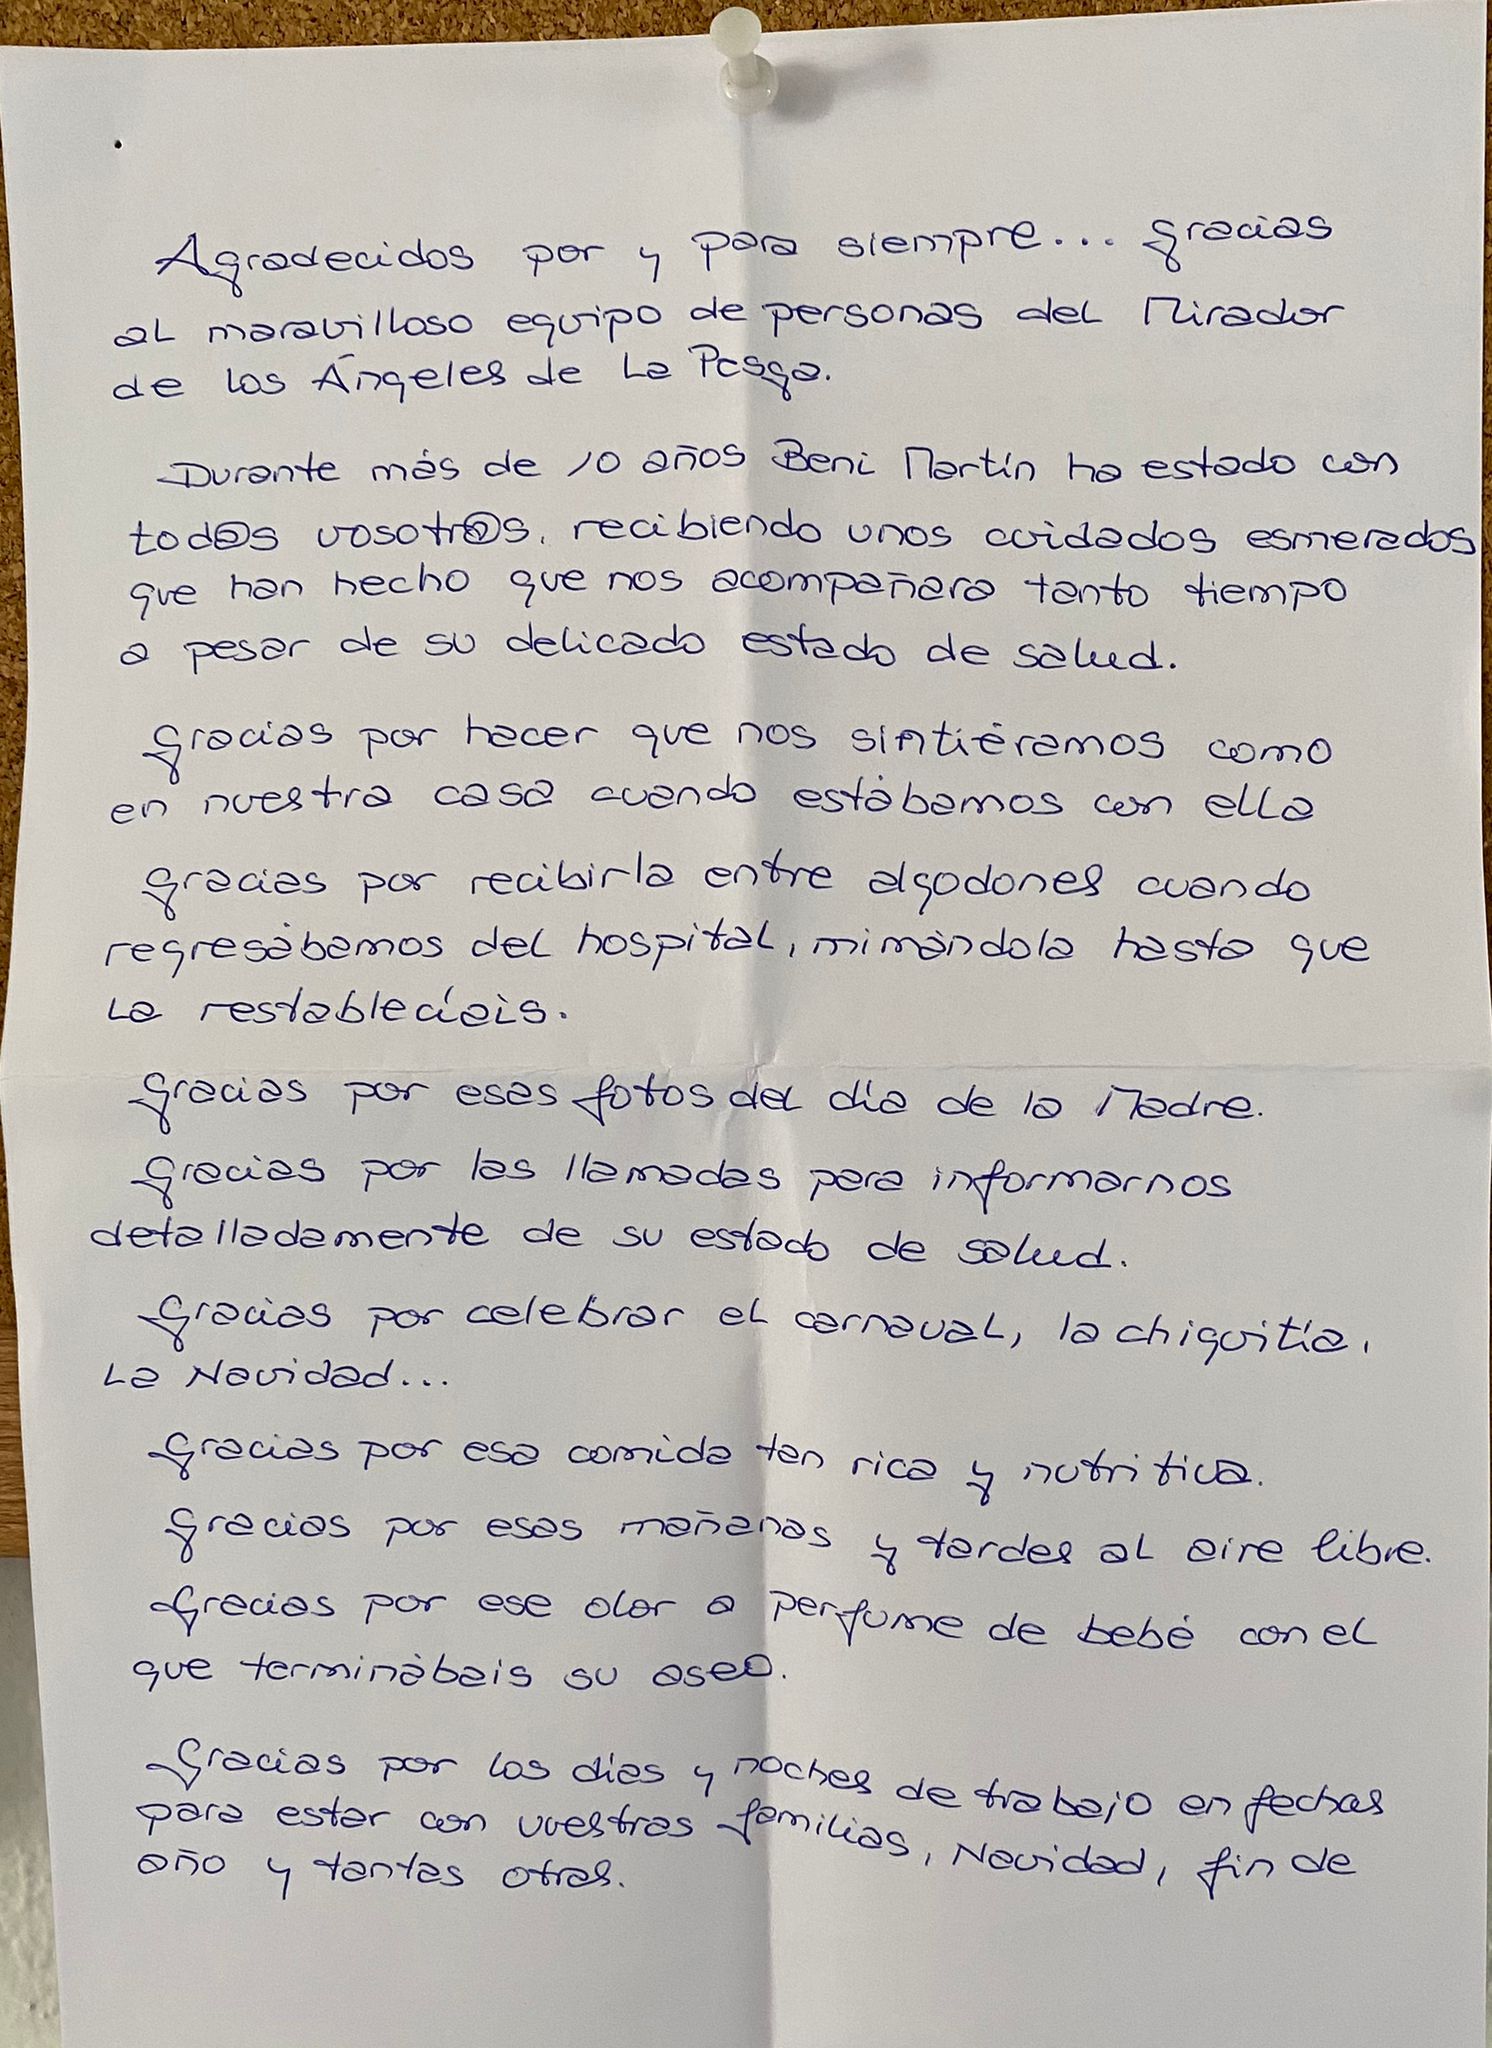 Agradecidos por y para siempre... gracias
al maravilloso equipo de personas del Mirador
de los Ángeles de La Pesga.
Durante más de 10 años Beni Martín ha estado con
tod@s vosotr@s, recibiendo unos cuidados esmerados
que han hecho que nos acompañara tanto tiempo
a pesar de su delicado estado de salud.
Gracias por hacer que nos sintiéramos como
en nuestra casa cuando estábamos con ella
Gracias por recibirla entre algodones cuando
regresábamos del hospital, mimándola hasta que
la restablecíais.
Gracias por esas fotos del día de la Madre.
Gracias por las llamadas para informarnos
detalladamente de su estado de salud.
Gracias por celebrar el carnaval, la chiquitía,
la Navidad...
Gracias por esa comida tan rica y nutritiva.
Gracias por esas mañanas y tardes al aire libre.
Gracias por ese olor a perfume de bebé con el
que terminábais su aseo.
Gracias por los días y noches de trabajo en fechas
para estar con vuestras familias, Navidad, fin de
año y tantas otras.